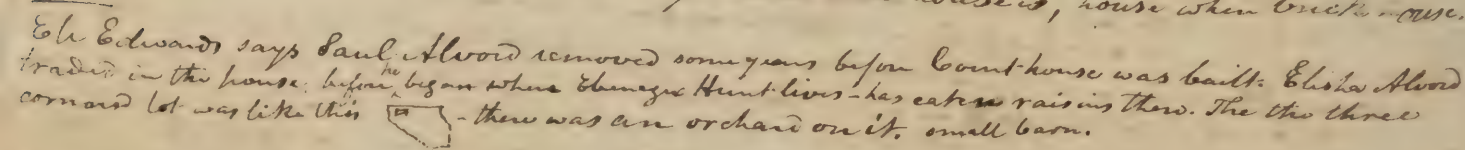 house is, house when brick house.
Eli Edwards says Saul Alvord removed some years before Court house was built. Elisha Alvord
traded in the house, before he began where Ebenezer Hunt lives - has eaten raisins there. The the three
cornered lot was like this - there was an orchard on it. small barn.